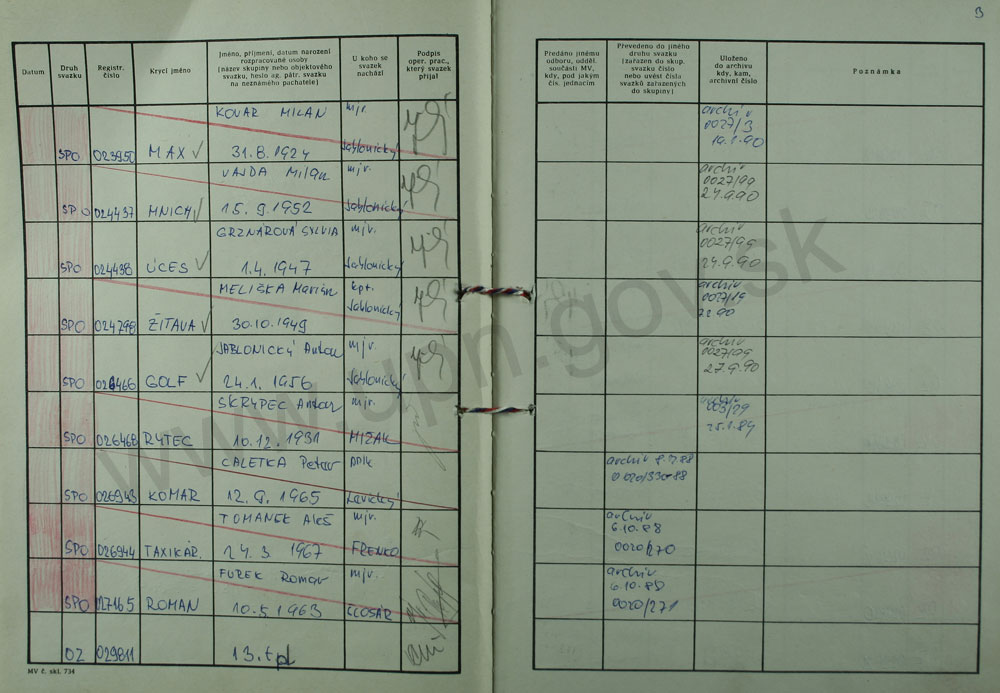 3
Datum
Druh svazku
Registr. číslo
Krycí jméno
Jméno, příjmení, datum narození rozpracované osoby (název skupiny nebo objektového svazku, heslo ag. pátr. svazku na neznámého pachatele)
U koho se svazek nachází
Podpis oper. prac., který svazek přijal
Předáno jinému odboru, odděl. součásti MV, kdy, pod jakým čís. jednacím
Převedeno do jiného druhu svazku (zařazen do skup. svazku číslo nebo uvést čísla svazků zařazených do skupiny)
Uloženo do archivu kdy, kam, archivní číslo
Poznámka
KOVÁR MILAN mjr.
SPO 023950 MAX ✓ 31.8.1924 Jablonický
archív
0027/3
19.1.90
VAJDA Milan mjr.
SPO 024437 MNICH ✓ 15.9.1952 Jablonický
archív
0027/99
24.9.90
GRZNÁROVÁ SYLVIA mjr.
SPO 024438 ÚČES ✓ 1.4.1947 Jablonický
archív
24.9.90
MELIŠKA Marián kpt.
SPO 024798 ŽITAVA ✓ 30.10.1949 Jablonický
archív
JABLONICKÝ Anton mjr.
SPO GOLF ✓ 24.1.1956 Jablonický
archív
0027/99
27.9.90
SKRYPEC Anton mjr.
SPO 026468 RYTEC 10.12.1931 MIZAK
CALETKA Peter
SPO 026943 KOMÁR 12.9.1965 Lavický
archív
TOMANEK Aleš mjr.
SPO 026944 TAXIKÁR. 24.3.1967 FRENKO
archív
6.10.88
0020/270
FUREK Roman mjr.
SPO 027165 ROMAN 10.5.1963
archív
6.10.88
0020/271
OZ 029811
MV č. skl. 734
www.upn.gov.sk